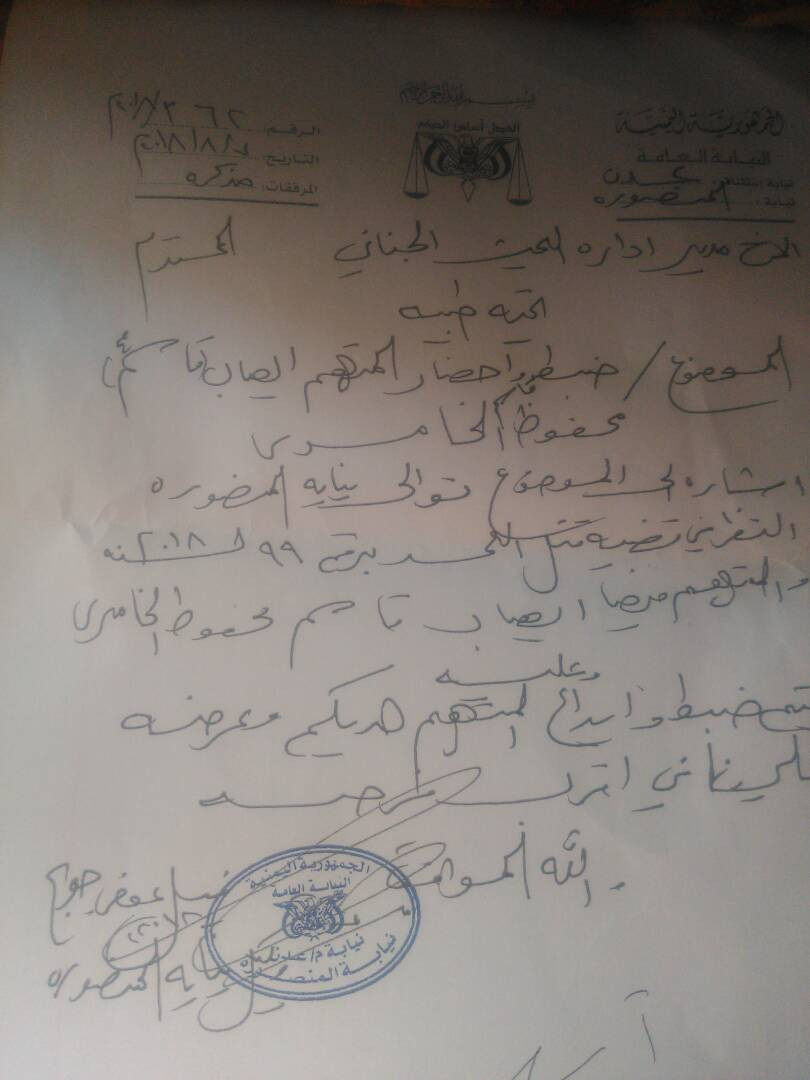 بسم الله الرحمن الرحيم
الجمهورية اليمنية
النيابة العامة
نيابة استئناف: عدن
نيابة: المنصوره
العدل أساس الحكم
الرقم:
التاريخ: ٢٠١٨/٨/
المرفقات: مذكره
الاخ مدير اداره البحث الجنائي المحترم
تحيه طيبه
الموضوع / ضبط واحضار المتهم ايهاب قاسم
محفوظ الخامري
اشاره الى الموضوع توالي نيابه المنصوره
التصرف في قضيه قتل العمد برقم ٩٩ لسنه ٢٠١٨
والمتهم فيها ايهاب قاسم محفوظ الخامري
وعليه
يتم ضبط وايداع المتهم لديكم وعرضه
علينا في اقرب فرصه
والله الموفق
عوض
وكيل نيابه المنصوره
الجمهورية اليمنية
النيابة العامة
نيابة م/عدن
نيابة المنصورة